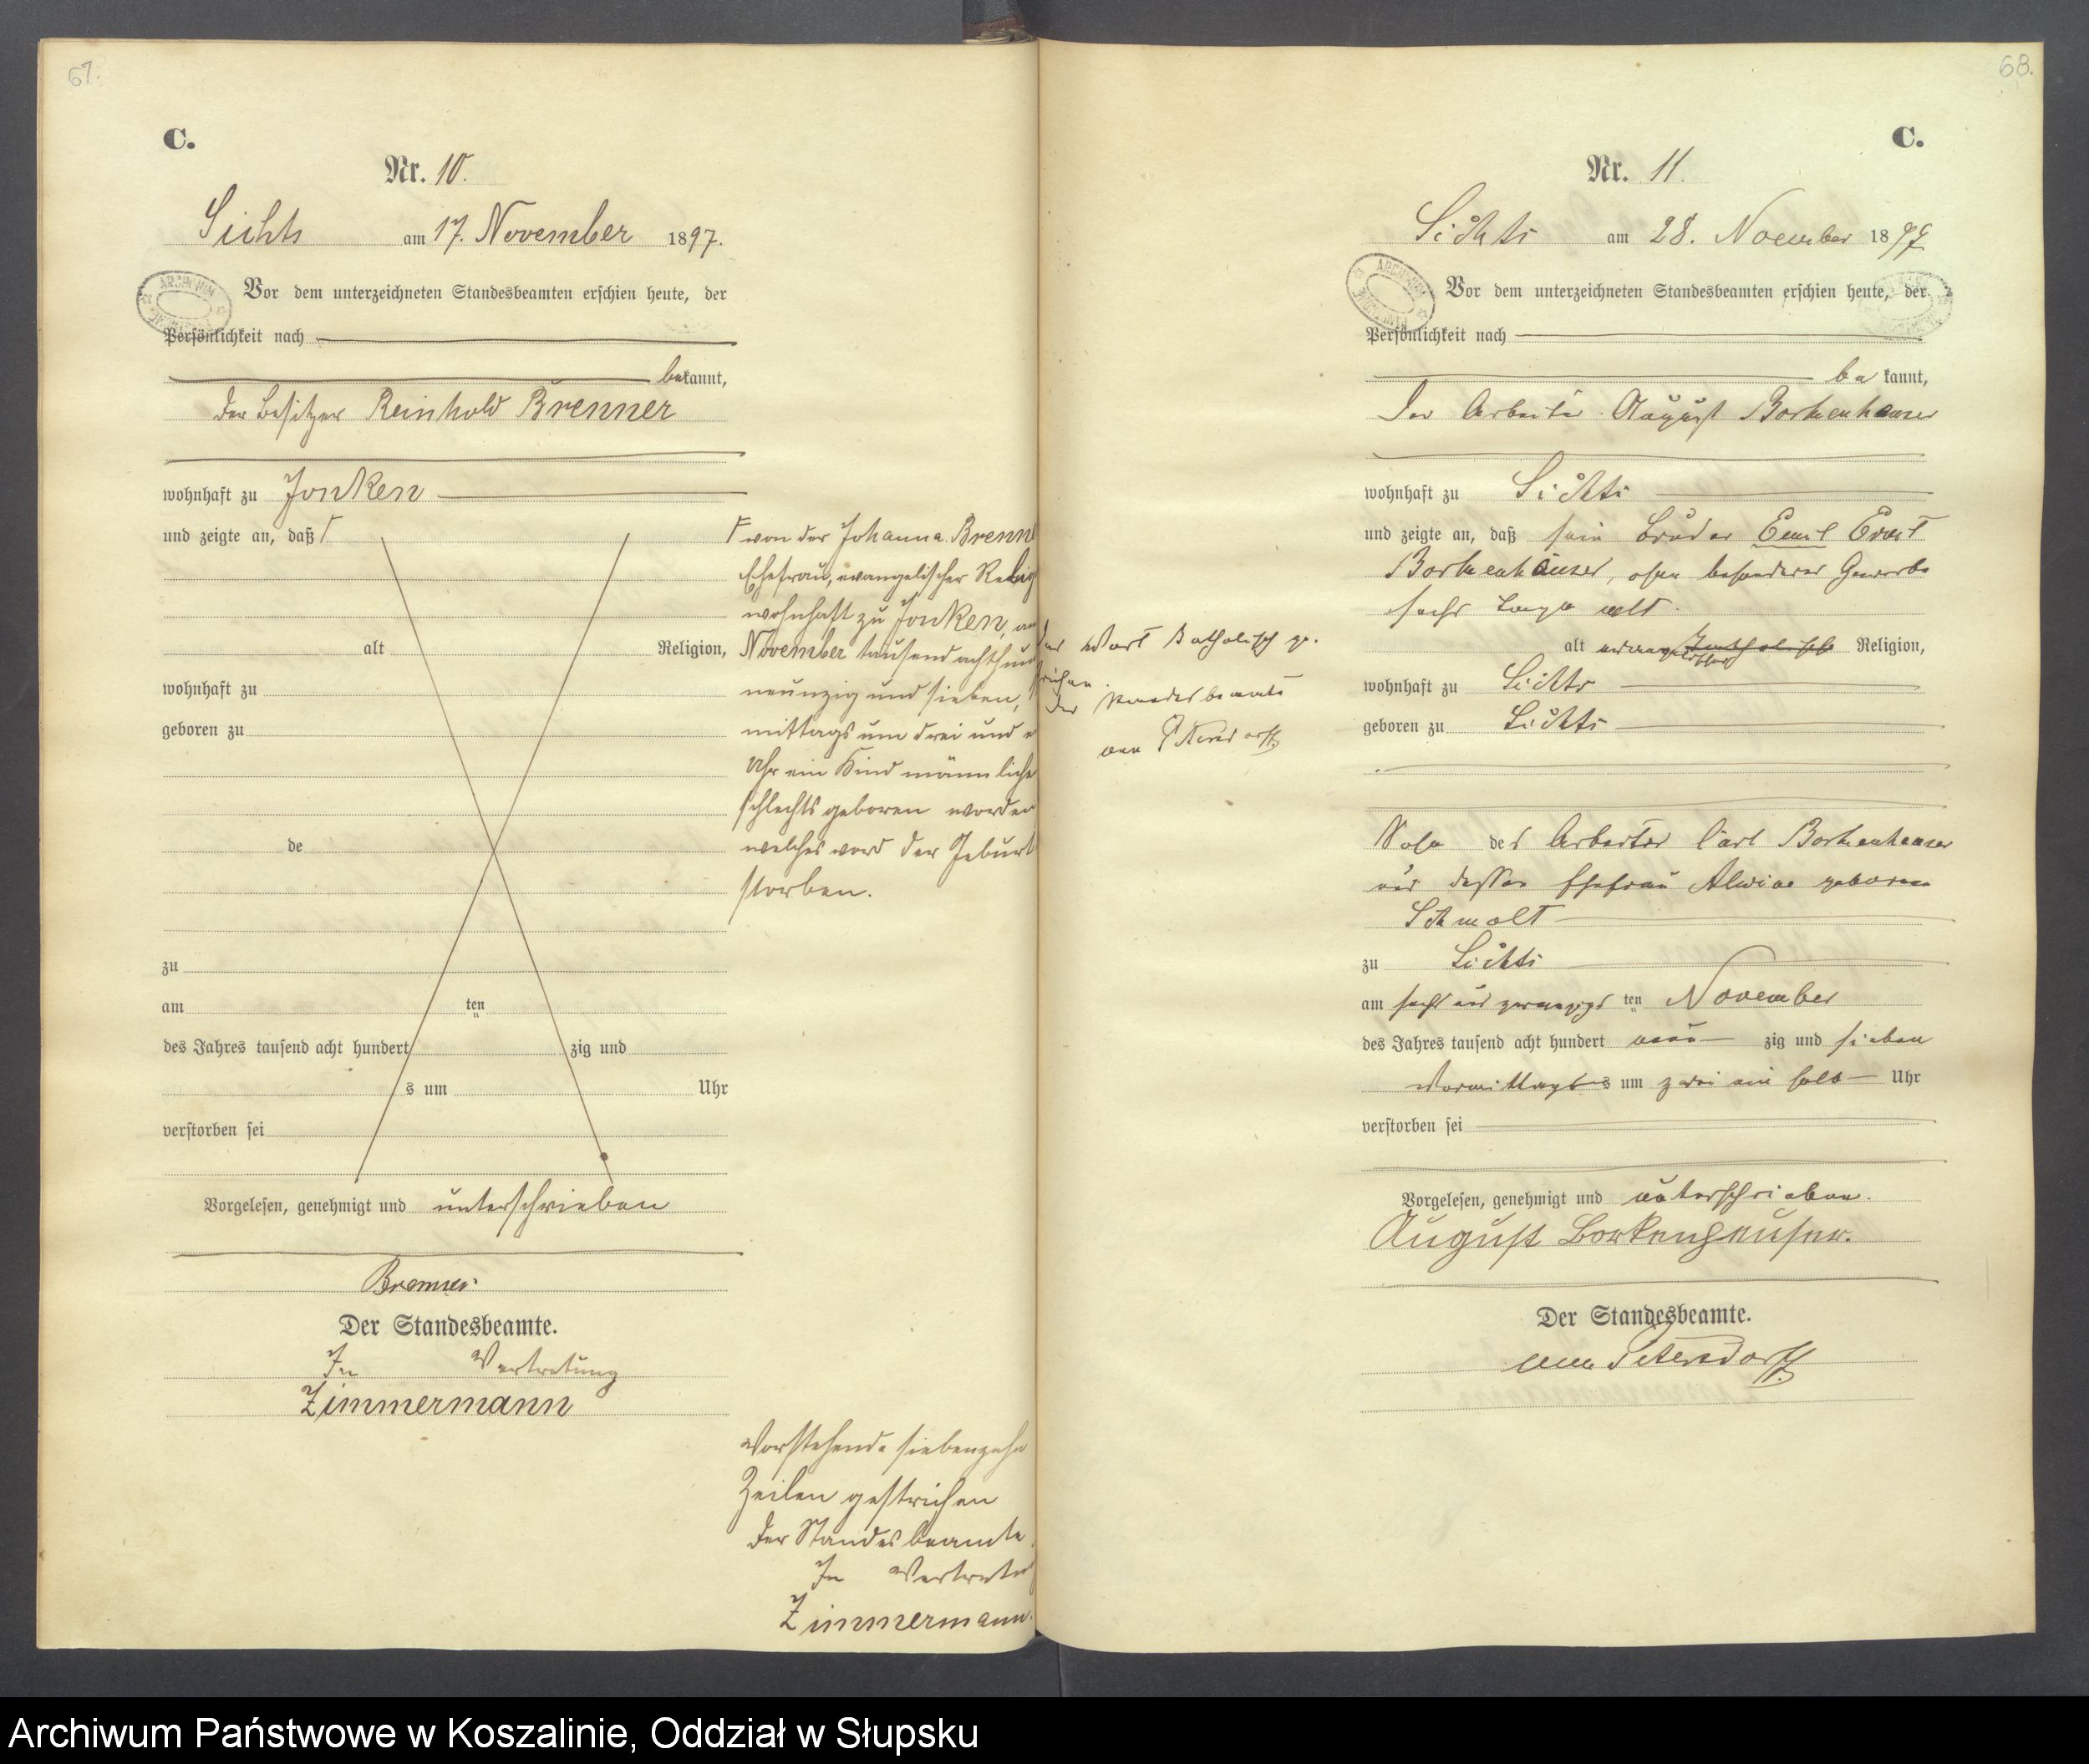 67.
C.
Nr. 10.
Sichts am 17. November 1897.
Vor dem unterzeichneten Standesbeamten erschien heute, der
Persönlichkeit nach
bekannt,
der Besitzer Reinhold Brenner
wohnhaft zu Jonken
und zeigte an, daß Γ
alt Religion,
wohnhaft zu
geboren zu
de
zu
am ten
des Jahres tausend acht hundert zig und
s um Uhr
verstorben sei
Vorgelesen, genehmigt und unterschrieben
Brenner.
Der Standesbeamte.
In Vertretung
Zimmermann
Γ von der Johanna Brenne
Ehefrau, evangelischer Relig
wohnhaft zu Jonken, am
November tausend achthun
neunzig und sieben,
mittags um drei und e
Uhr ein Kind männliche
schlechts geboren worden
welches vor der Geburt
storben.
Vorstehende siebenzehn
Zeilen gestrichen
Der Standesbeamte.
In Vertretu
Zimmermann.
68.
C.
Nr. 11.
Sichts am 28. November 1897
Vor dem unterzeichneten Standesbeamten erschien heute, der
Persönlichkeit nach
bekannt,
Der Arbeiter August Borkenhauser
wohnhaft zu Sichts
und zeigte an, daß sein Bruder Emil Ernst
Borkenhauser, ohne besonderes Gewerbe
sechs Tage alt.
alt evangelischer katholische Religion,
wohnhaft zu Sichts
geboren zu Sichts
Sohn des Arbeiter Carl Borkenhauser
und dessen Ehefrau Alwine geborene
Schmolt
zu Sichts
am sechs und zwanzigs ten November
des Jahres tausend acht hundert neun zig und sieben
Vormittags um zwei ein halb Uhr
verstorben sei
Vorgelesen, genehmigt und unterschrieben.
August Borkenhauser.
Der Standesbeamte.
von Petersdorff
Das Wort Katholisch ge-
strichen.
Der Standesbeamte
von Petersdorff
ARCHIWUM
ARCHIWUM
Archiwum Państwowe w Koszalinie, Oddział w Słupsku